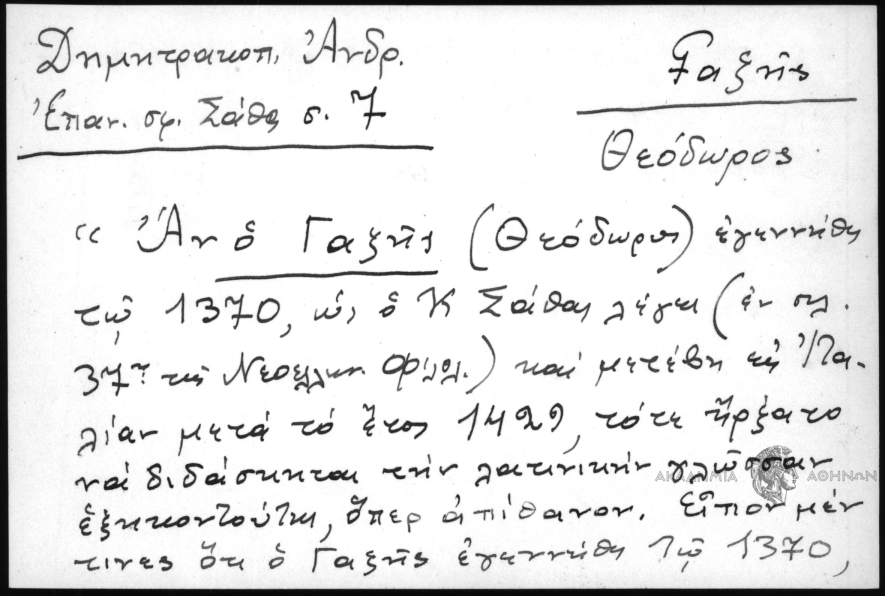 Δημητρακοπ. Ἀνδρ.
Ἐπαν. σφ. Σάθα σ. 7
Γαζῆς
Θεόδωρος
«Ἄν ὁ Γαζῆς (Θεόδωρος) ἐγεννήθη
τῷ 1370, ὡς ὁ Κ Σάθας λέγει (ἐν σελ.
37ῃ τῆς Νεοελλην. Φιλολ.) καί μετέβη εἰς Ἰτα-
λίαν μετά τό ἔτος 1429, τότε ἤρξατο
νά διδάσκηται τήν λατινικήν γλῶσσαν
ἑξηκοντούτης, ὅπερ ἀπίθανον. Εἶπον μέν
τινες ὅτι ὁ Γαζῆς ἐγεννήθη τῷ 1370,
ΑΚΑΔΗΜΙΑ ΑΘΗΝΩΝ